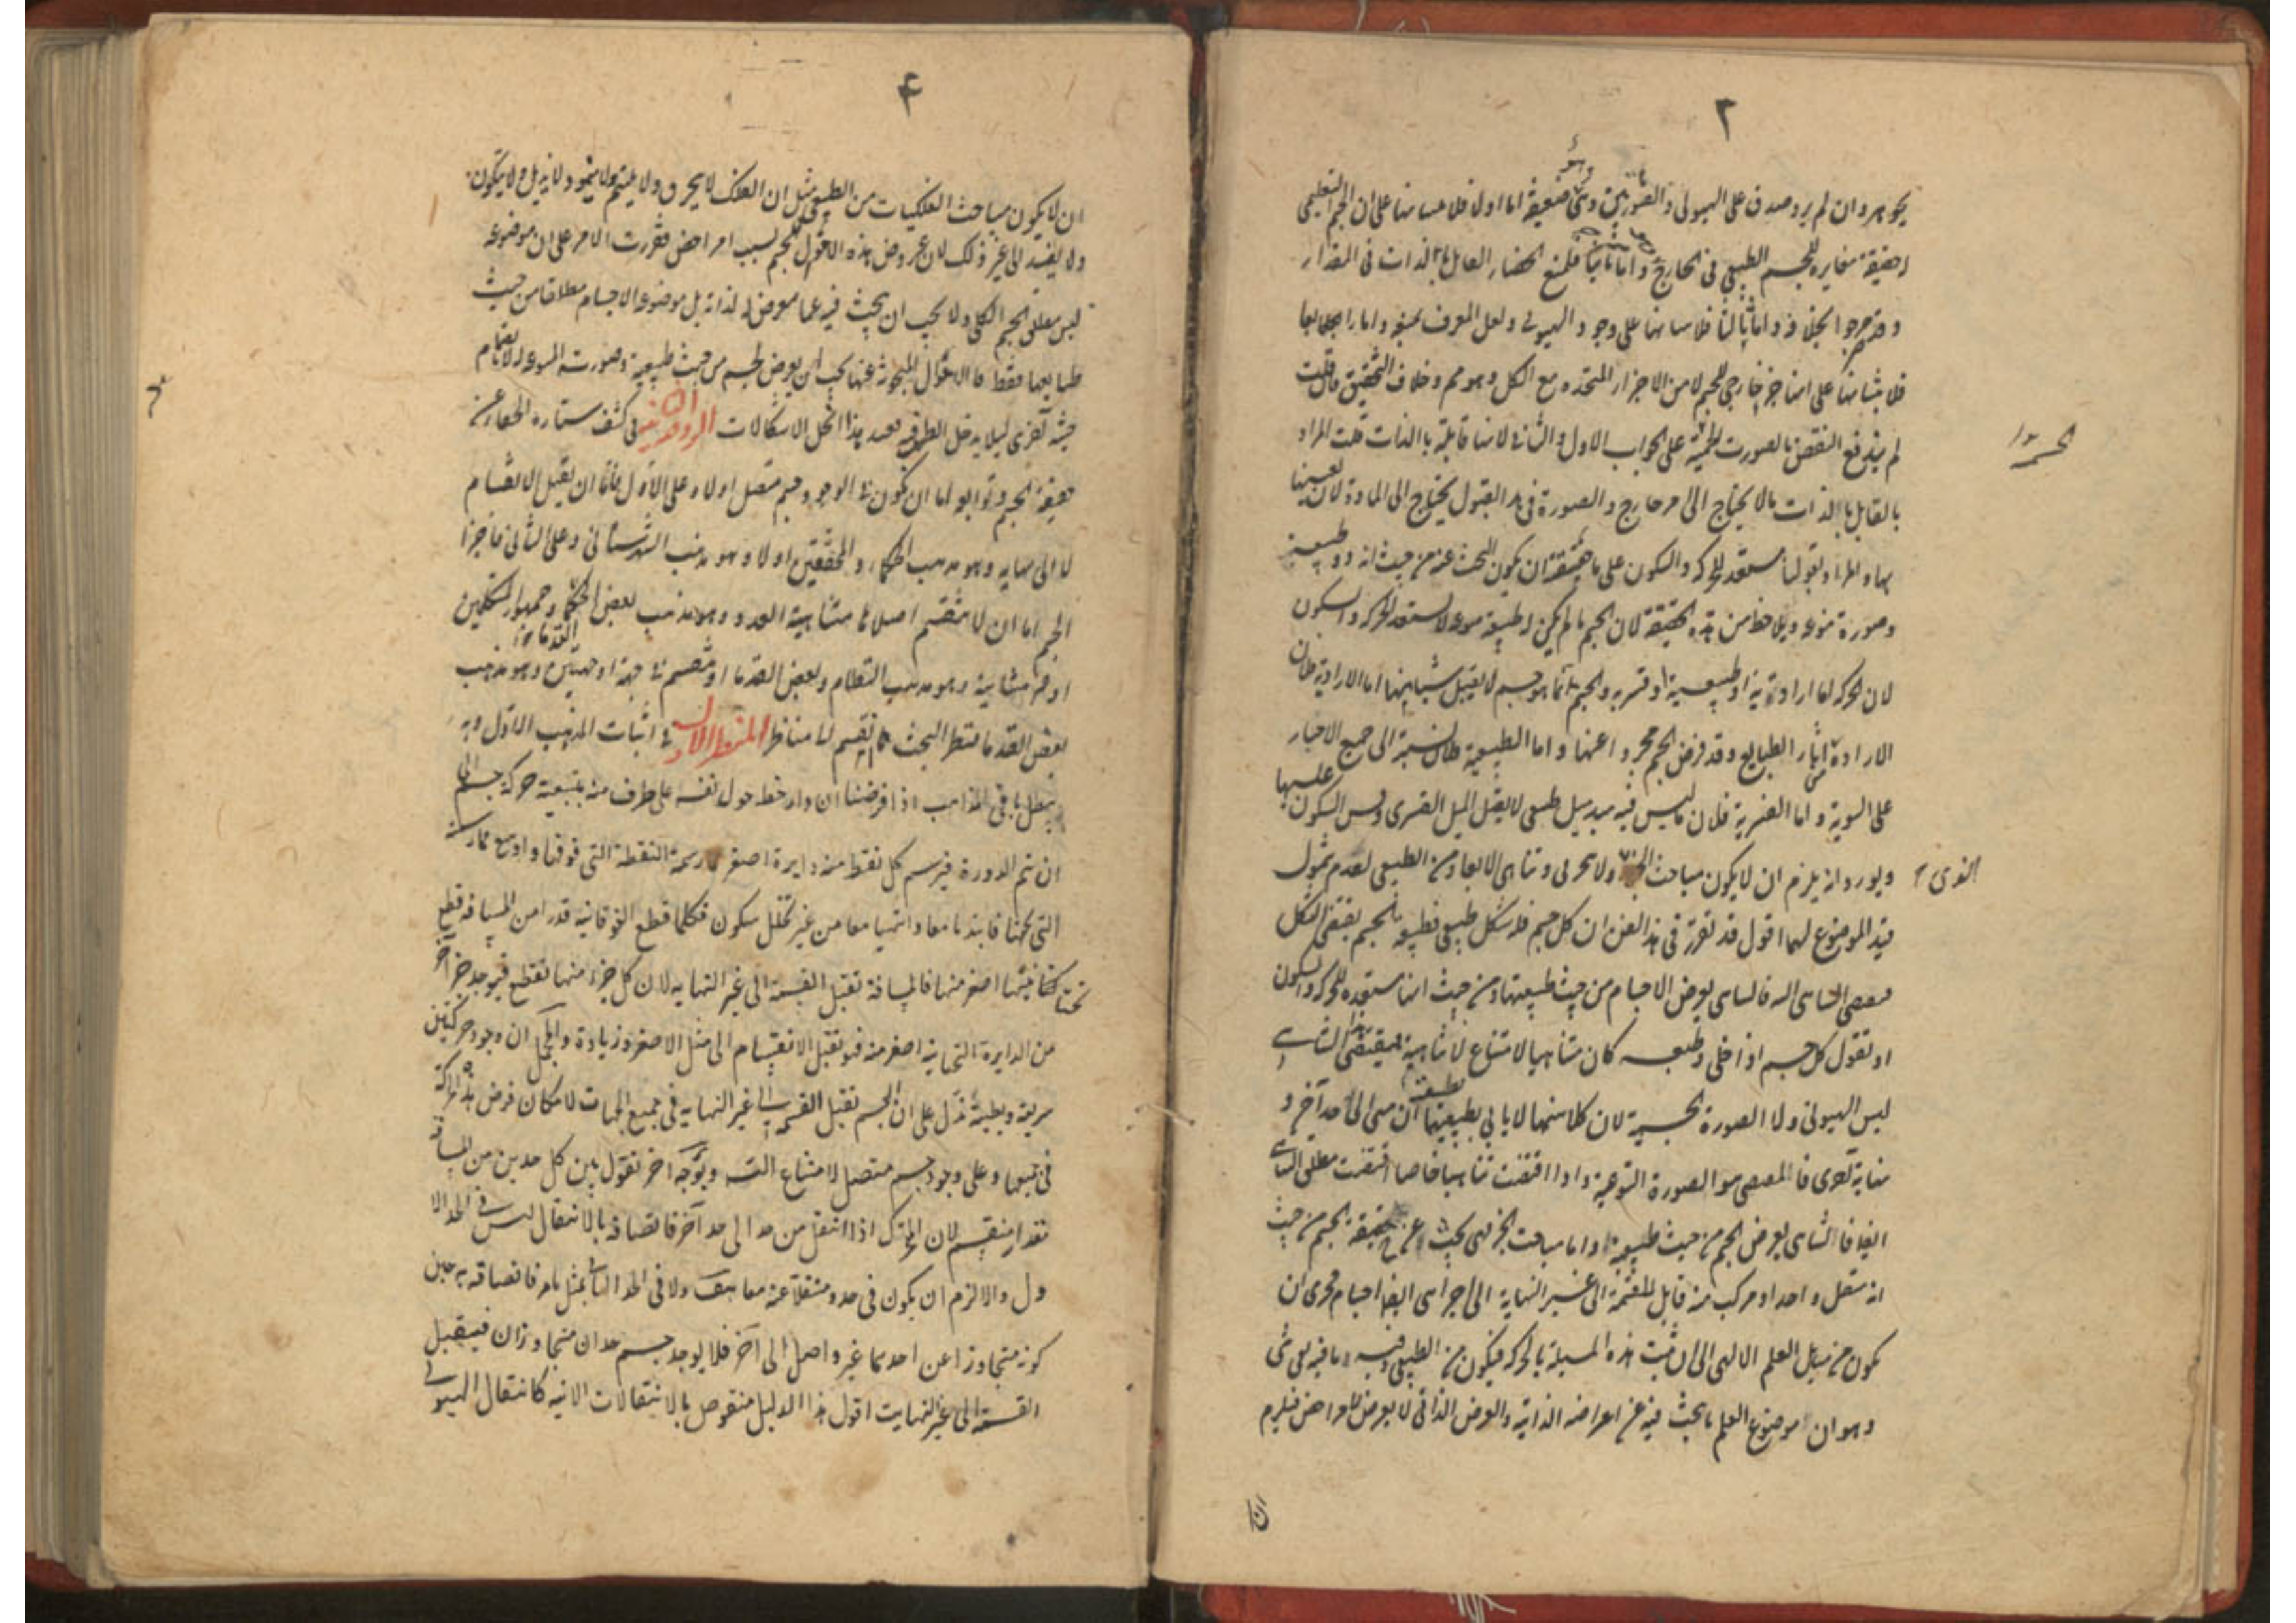 ٣
بجوهر وان لم يرد صدق على الهيولى والصورتين وهى ضعيفة اما اولا فلابتنائها على ان الجسم التعليمى
حقيقة مغايرة للجسم الطبيعى فى الخارج واما ثانيا فلمنع انحصار القابل بالذات فى المقدار
وقد صرحوا بخلافه واما ثالثا فلابتنائها على وجود الهيولى ولعل المعرف واما رابعا
فلابتنائها على انها جزء خارجى للجسم لا من الاجزاء المتحدة مع الكل وهو مم وخلاف التحقيق فان قلت
لم يندفع النقض بالصورت الجسمية على الجواب الاول والثانى لانها قابلة بالذات قلت المراد
بالقابل بالذات ما لا يحتاج الى امر خارج والصورة فى هذا القبول يحتاج الى المادة لان تعينها
بها والمراد بقولنا مستعد للحركة والسكون على ما حققته ان يكون البحث عنه من حيث انه ذو طبيعة
وصورة نوعية ويلاحظ من هذه الحقيقة لان الجسم ما لم يكن له طبيعة نوعية لا يستعد للحركة والسكون
لان الحركة اما ارادية او طبيعية او قسرية والجسم بما هو جسم لا يقبل شيئا منها اما الارادية فلان
الارادة من آثار الطبايع وقد فرض الجسم مجردا عنها واما الطبيعية فلان نسبته الى جميع الاحياز
على السوية واما القسرية فلان ما ليس فيه مبدء ميل طبعى لا يقبل الميل القسرى وقس السكون عليها
ويورد انه يلزم ان لا يكون مباحث الجزء ولا تجزى وتناهى الابعاد من الطبيعى لعدم شمول
قيد الموضوع لهما اقول قد تقرر فى هذا الفن ان كل جسم فله شكل طبيعى فطبيعة الجسم يقتضى الشكل
التناهى يعرض الاجسام من حيث طبيعتها ومن حيث انها مستعدة للحركة والسكون
او نقول كل جسم اذا خلى وطبعه كان متناهيا لامتناع لا تناهيه فمقتضى هذا التناهى
ليس الهيولى ولا الصورة الجسمية لان كلا منهما لا يابى بطبيعتها ان ينتهى الى حد آخر و
نهاية اخرى فالمقتضى هو الصورة النوعية واذا اقتضت تناهيا خاصا اقتضت مطلق التناهى
ايضا فالتناهى يعرض الجسم من حيث طبيعته واما مباحث الجزء فهى بحث عن حقيقة الجسم من حيث
انه متصل واحد او مركب منه قابل للقسمة الى غير النهاية الى اجزاء هى ايضا اجسام فحرى ان
يكون من مسايل العلم الالهى الى ان يثبت هذه المسئلة بالحركة فيكون من الطبيعى وفيه ما فيه بقى شى
وهو ان موضوع العلم ما يبحث فيه عن اعراضه الذاتية والعرض الذاتى لا يعرض للاعراض فيلزم
ان
الجسمية
القوى
٤
ان لا يكون مباحث الفلكيات من الطبيعى مثل ان الفلك لا يخرق ولا يلتئم ولا ينمو ولا يذبل ولا يتكون
ولا يفسد الى غير ذلك لان عروض هذه الاحوال للجسم بسبب امر اخص فقررت الامر على ان موضوعه
ليس مطلق الجسم الكلى ولا يجب ان يبحث فيه عما يعرض له لذاته بل موضوعه الاجسام مطلقا من حيث
طبايعها فقط فالاحوال المبحوثة عنها يجب ان يعرض لجسم من حيث طبيعته وصورته النوعية لا بانضمام
حيثية اخرى ليلا يدخل الطب فيه فبعد هذا انحل الاشكالات الروضة الثانية فى كشف ستارة الخفاء عن
حقيقة الجسم وتوابعه اما ان يكون فى الوجود جسم متصل اولا وعلى الاول فاما ان يقبل الانقسام
لا الى نهاية وهو مذهب الحكماء والمحققين اولا وهو مذهب الشهرستانى وعلى الثانى فاجزاء
الجسم اما ان لا ينقسم اصلا متناهية العدد وهو مذهب بعض القدماء وجمهور المتكلمين
او غير متناهية وهو مذهب النظام وبعض القدما او ينقسم فى جهة او جهتين وهو مذهب
بعض القدما فلننظر البحث كما انقسم لنا مناظر المنظر الاول فى اثبات المذهب الاول وبه
يبطل باقى المذاهب اذا فرضنا ان دار خط حول نفسه على طرف منه بتبعية حركة جسم الى
ان يتم الدورة فيرسم كل نقطة منه دايرة اصغر مما رسمته النقطة التى فوقها واوسع مما رسمته
التى تحتها فابتدئا معا وانتهيا معا من غير تخلل سكون فكلما قطع الفوقانية قدرا من المسافة قطع
تحتانيتها اصغر منها فالمسافة تقبل القسمة الى غير النهاية لان كل جزء منها تقطع فيوجد جزء آخر
من الدايرة التحتانية اصغر منه فهو تقبل الانقسام الى مثل الاصغر وزيادة وبالجملة ان وجود حركتين
سريعة وبطيئة تدل على ان الجسم تقبل القسمة الى غير النهاية فى جميع الجهات لامكان فرض هذه الحركة
فى جميعها وعلى وجود جسم متصل لامتناع التسـ وبوجه اخر نقول بين كل حدين من المسافة
مقدار منقسم لان المتحرك اذا انتقل من حد الى حد آخر فاتصافه بالانتقال ليس فى الحد الا
ول والا لزم ان يكون فى حد ومنتقلا عنه معا هف ولا فى الحد الثانى بمثل ما مر فاتصافه به حين
كونه متجاوزا عن احدهما غير واصل الى آخر فلا يوجد جسم حدان متجاوران فيقبل
القسمة الى غير النهايت اقول هذا الدليل منقوض بالانتقالات الانية كانتقال الهيولى